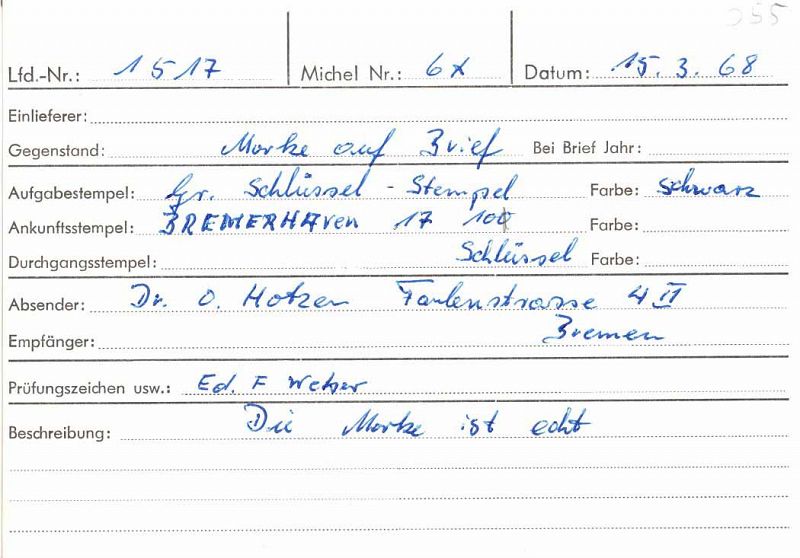 255
Lfd.-Nr.: 1517 Michel Nr.: 6x Datum: 15.3.68
Einlieferer:
Gegenstand: Marke auf Brief Bei Brief Jahr:
Aufgabestempel: Gr. Schlüssel-Stempel Farbe: schwarz
Ankunftsstempel: BREMERHAven 17 10 Farbe:
Durchgangsstempel: Schlüssel Farbe:
Absender: Dr. O. Hotzen Faulenstrasse 4 II
Empfänger: Bremen
Prüfungszeichen usw.: Ed. F
Beschreibung: Die Marke ist echt